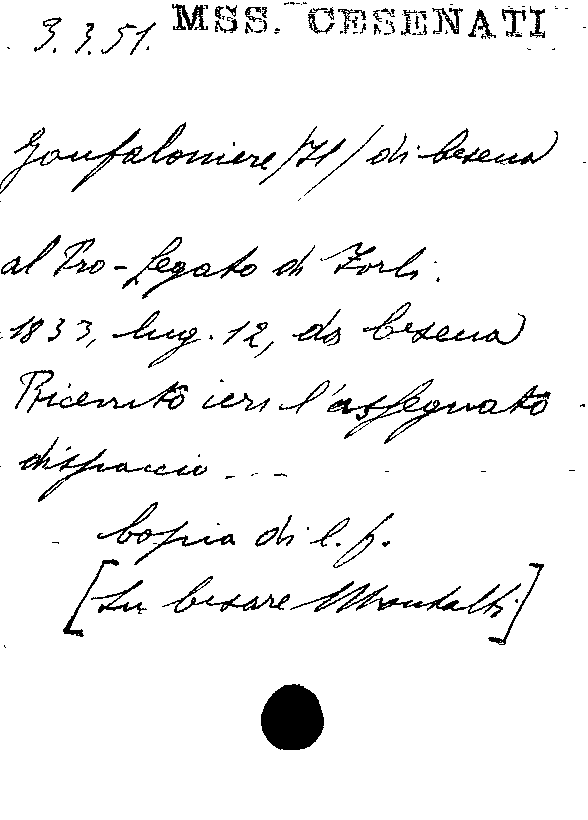 3.3.51. MSS. CESENATI
Gonfaloniere /Il/ di Cesena
al Pro-Legato di Forlì.
1833, lug. 12, da Cesena
Ricevuto ieri l'assegnato
dispaccio ...
Copia di l. p.
[Su Cesare Montalti]